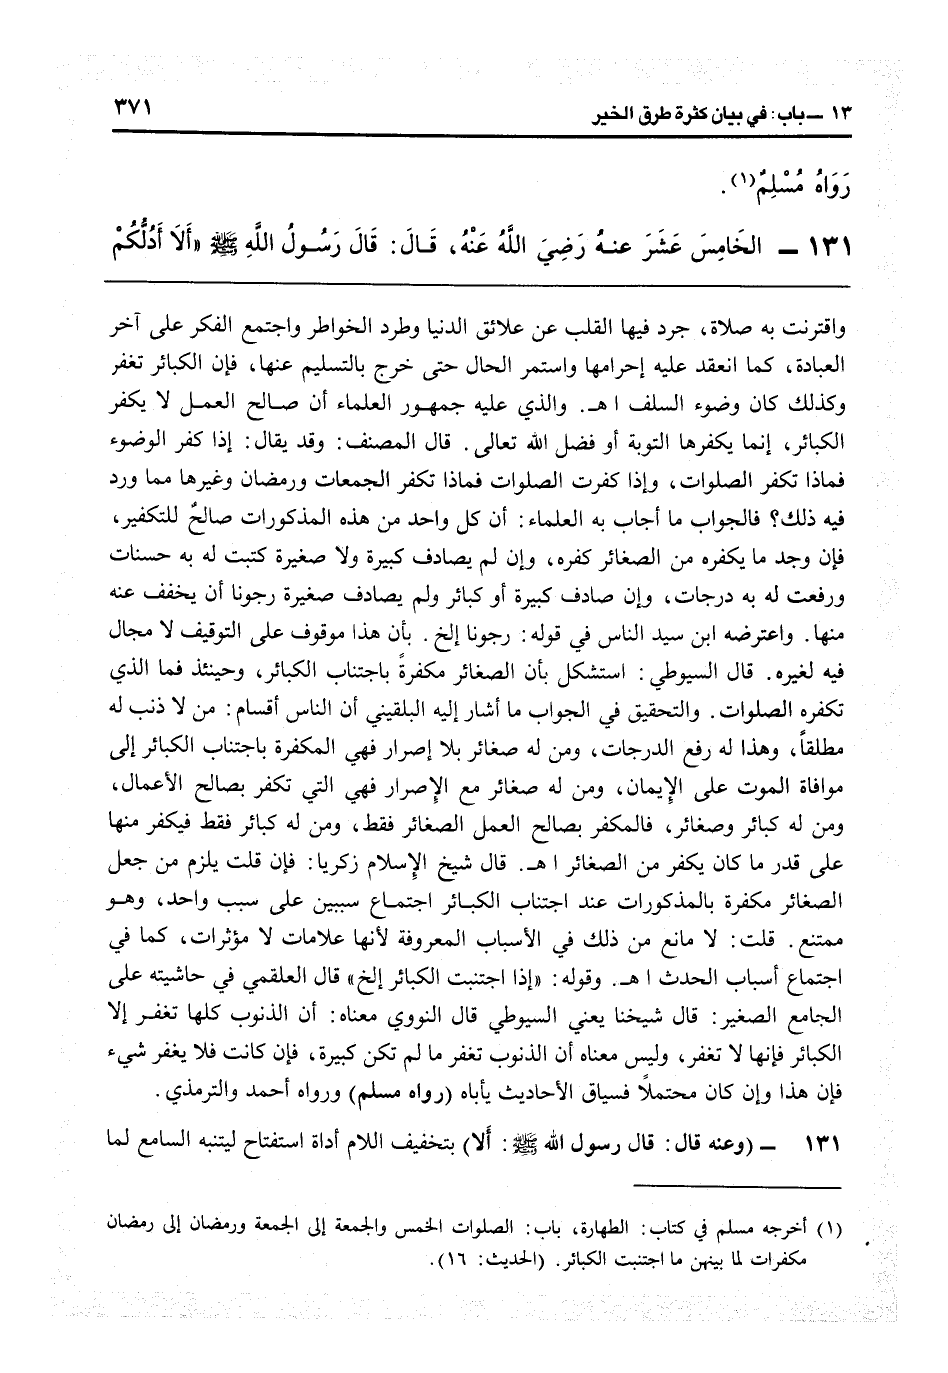 ١٣ ــ باب: في بيان كثرة طرق الخير ٣٧١
رَوَاهُ مُسْلِمٌ(١).
١٣١ ــ الخَامِسَ عَشَرَ عنهُ رَضِيَ اللَّهُ عَنْهُ، قَالَ: قَالَ رَسُولُ اللَّهِ ﷺ «أَلَا أَدُلُّكُمْ
واقترنت به صلاة، جرد فيها القلب عن علائق الدنيا وطرد الخواطر واجتمع الفكر على آخر
العبادة، كما انعقد عليه إحرامها واستمر الحال حتى خرج بالتسليم عنها، فإن الكبائر تغفر
وكذلك كان وضوء السلف ا هـ. والذي عليه جمهور العلماء أن صالح العمل لا يكفر
الكبائر، إنما يكفرها التوبة أو فضل الله تعالى. قال المصنف: وقد يقال: إذا كفر الوضوء
فماذا تكفر الصلوات، وإذا كفرت الصلوات فماذا تكفر الجمعات ورمضان وغيرها مما ورد
فيه ذلك؟ فالجواب ما أجاب به العلماء: أن كل واحد من هذه المذكورات صالحٌ للتكفير،
فإن وجد ما يكفره من الصغائر كفره، وإن لم يصادف كبيرة ولا صغيرة كتبت له به حسنات
ورفعت له به درجات، وإن صادف كبيرة أو كبائر ولم يصادف صغيرة رجونا أن يخفف عنه
منها. واعترضه ابن سيد الناس في قوله: رجونا إلخ. بأن هذا موقوف على التوقيف لا مجال
فيه لغيره. قال السيوطي: استشكل بأن الصغائر مكفرةً باجتناب الكبائر، وحينئذ فما الذي
تكفره الصلوات. والتحقيق في الجواب ما أشار إليه البلقيني أن الناس أقسام: من لا ذنب له
مطلقاً، وهذا له رفع الدرجات، ومن له صغائر بلا إصرار فهي المكفرة باجتناب الكبائر إلى
موافاة الموت على الإيمان، ومن له صغائر مع الإصرار فهي التي تكفر بصالح الأعمال،
ومن له كبائر وصغائر، فالمكفر بصالح العمل الصغائر فقط، ومن له كبائر فقط فيكفر منها
على قدر ما كان يكفر من الصغائر ا هـ. قال شيخ الإسلام زكريا: فإن قلت يلزم من جعل
الصغائر مكفرة بالمذكورات عند اجتناب الكبائر اجتماع سببين على سبب واحد، وهو
ممتنع. قلت: لا مانع من ذلك في الأسباب المعروفة لأنها علامات لا مؤثرات، كما في
اجتماع أسباب الحدث ا هـ. وقوله: «إذا اجتنبت الكبائر إلخ» قال العلقمي في حاشيته على
الجامع الصغير: قال شيخنا يعني السيوطي قال النووي معناه: أن الذنوب كلها تغفر إلا
الكبائر فإنها لا تغفر، وليس معناه أن الذنوب تغفر ما لم تكن كبيرة، فإن كانت فلا يغفر شيء
فإن هذا وإن كان محتملاً فسياق الأحاديث يأباه (رواه مسلم) ورواه أحمد والترمذي.
١٣١ ــ (وعنه قال: قال رسول الله ﷺ: أَلا) بتخفيف اللام أداة استفتاح ليتنبه السامع لما
(١) أخرجه مسلم في كتاب: الطهارة، باب: الصلوات الخمس والجمعة إلى الجمعة ورمضان إلى رمضان
مكفرات لما بينهن ما اجتنبت الكبائر. (الحديث: ١٦).